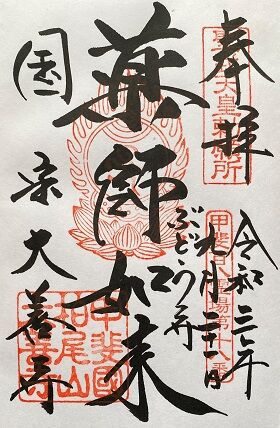 奉拝
令和三年
九月二十二日
ぶどう寺
薬師如来
国宗大善寺
甲斐百八霊場第十八番
甲斐國
柏尾山
大善寺